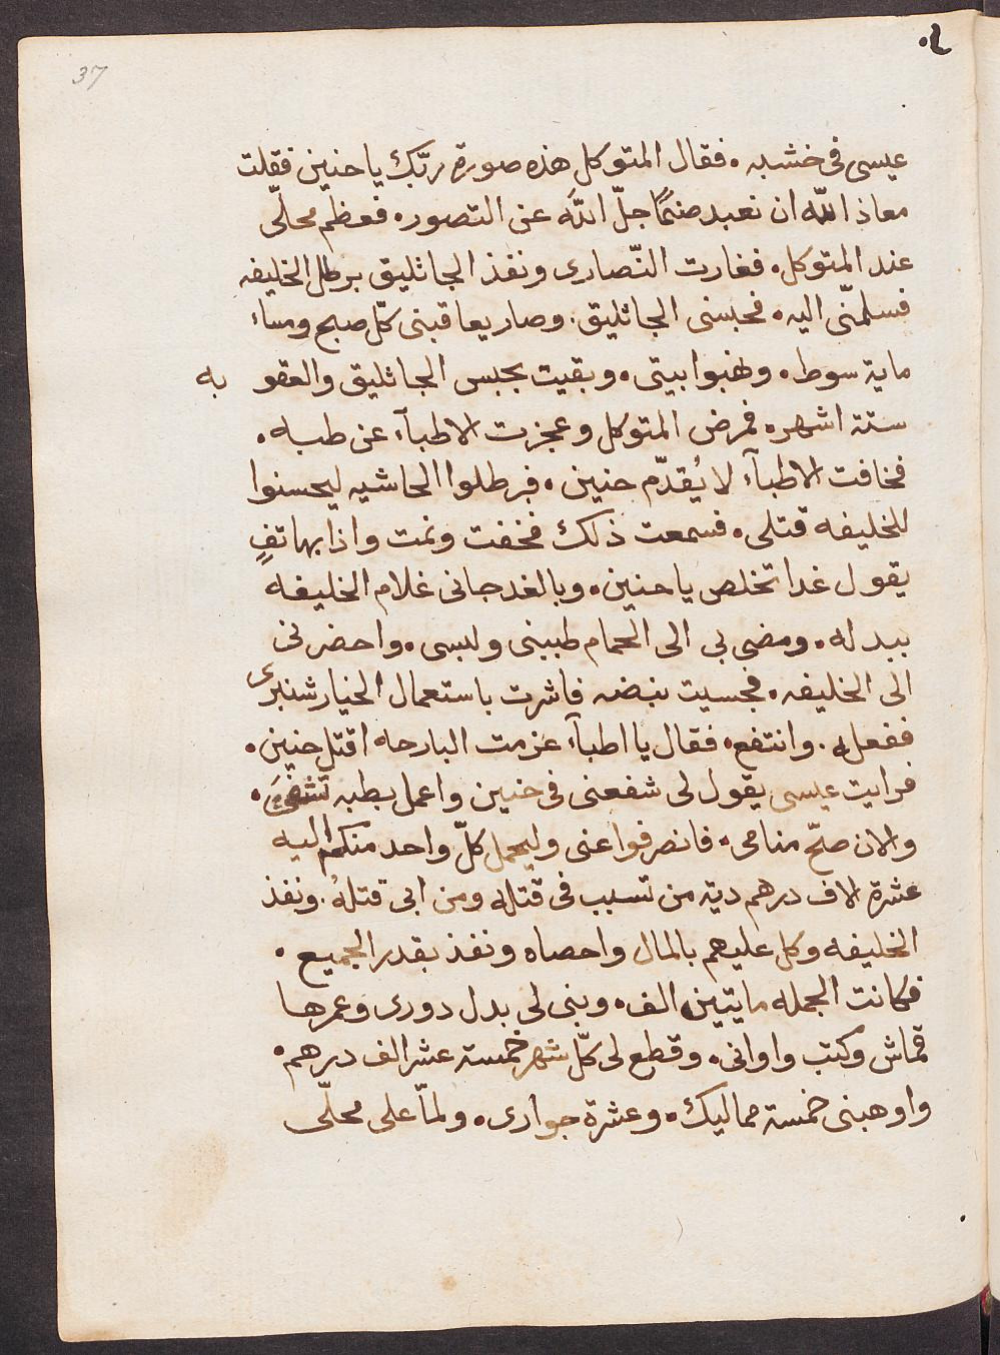 37
عيسى فى خشبه. فقال المتوكل هذه صورة ربّك يا حنين فقلت
معاذ اللّه ان نعبد صنمًا جلّ اللّه عن التصور. فعظم محلّى
عند المتوكل. فغارت النّصارى ونفذ الجاثليق برطل الخليفه
فسلمنّى اليه. فحبسنى الجاثليق. وصار يعاقبنى كلّ صبح ومساء
ماية سوط. ونهبوا بيتى. وبقيت بحبس الجاثليق والعقو به
ستة اشهر. فمرض المتوكل وعجزت الاطبآء عن طبه.
فخافت الاطبآء لا يُقدّم حنين. فبرطلوا الحاشيه ليحسنوا
للخليفه قتلى. فسمعت ذلك فخفت ونمت واذا بهاتفٍ
يقول غدا تخلص يا حنين. وبالغد جانى غلام الخليفه
ببدله. ومضى بى الى الحمام طببنى ولبسى. واحضرنى
الى الخليفه. فجسيت نبضه فاشرت باستعمال الخيار شنبرى
ففعله. وانتفع. فقال يا اطبآء عزمت البارحه اقتل حنين.
فرايت عيسى يقول لى شفعنى فى حنين واعمل بطبه
والان صحّ منامى. فانصرفوا عنى وليحمل كلّ واحد منكم اليه
عشرة الاف درهم دية من تسبب فى قتله ومن ابى قتلهُ. ونفذ
الخليفه وكل عليهم بالمال واحصاه ونفذ بقدر الجميع.
فكانت الجمله مايتين الف. وبنى لى بدل دورى وعمرها
قماش وكتب واوانى. وقطع لى كلّ شهر خمسة عشر الف درهم.
واوهبنى خمسة مماليك. وعشرة جوارى. ولمّا على محلّى